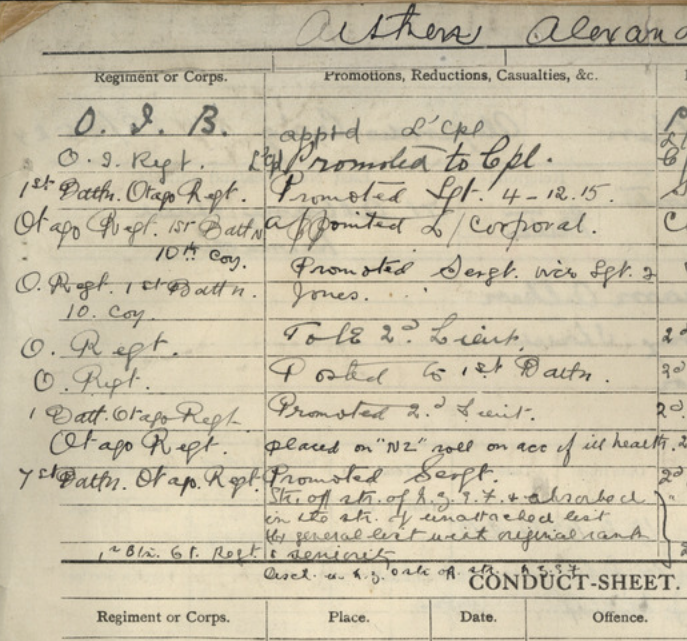 Aitken Alexand
Regiment or Corps. Promotions, Reductions, Casualties, &c.
O. I. B. apptd L'Cpl
O. I. Regt. L'Cpl Promoted to Cpl.
1st Battn. Otago Regt. Promoted Sgt. 4-12.15.
Otago Regt. 1st Battn appointed L/Corporal.
10th Coy.
Promoted Sergt. vice Sgt.
O. Regt. 1st Battn. Jones.
10. Coy.
O. Regt. To be 2d Lieut.
O. Regt. Posted to 1st Battn.
1 Batt. Otago Regt. Promoted 2d Lieut.
Otago Regt. placed on "NZ" roll on acc of ill health.
1st Battn. Otago. Regt. Promoted Sergt.
Str. off str. of N.Z.E.F. & absorbed
in the str. of unattached list
general list with original rank
1st Btn. Regt & seniority
CONDUCT-SHEET.
Regiment or Corps. Place. Date. Offence.